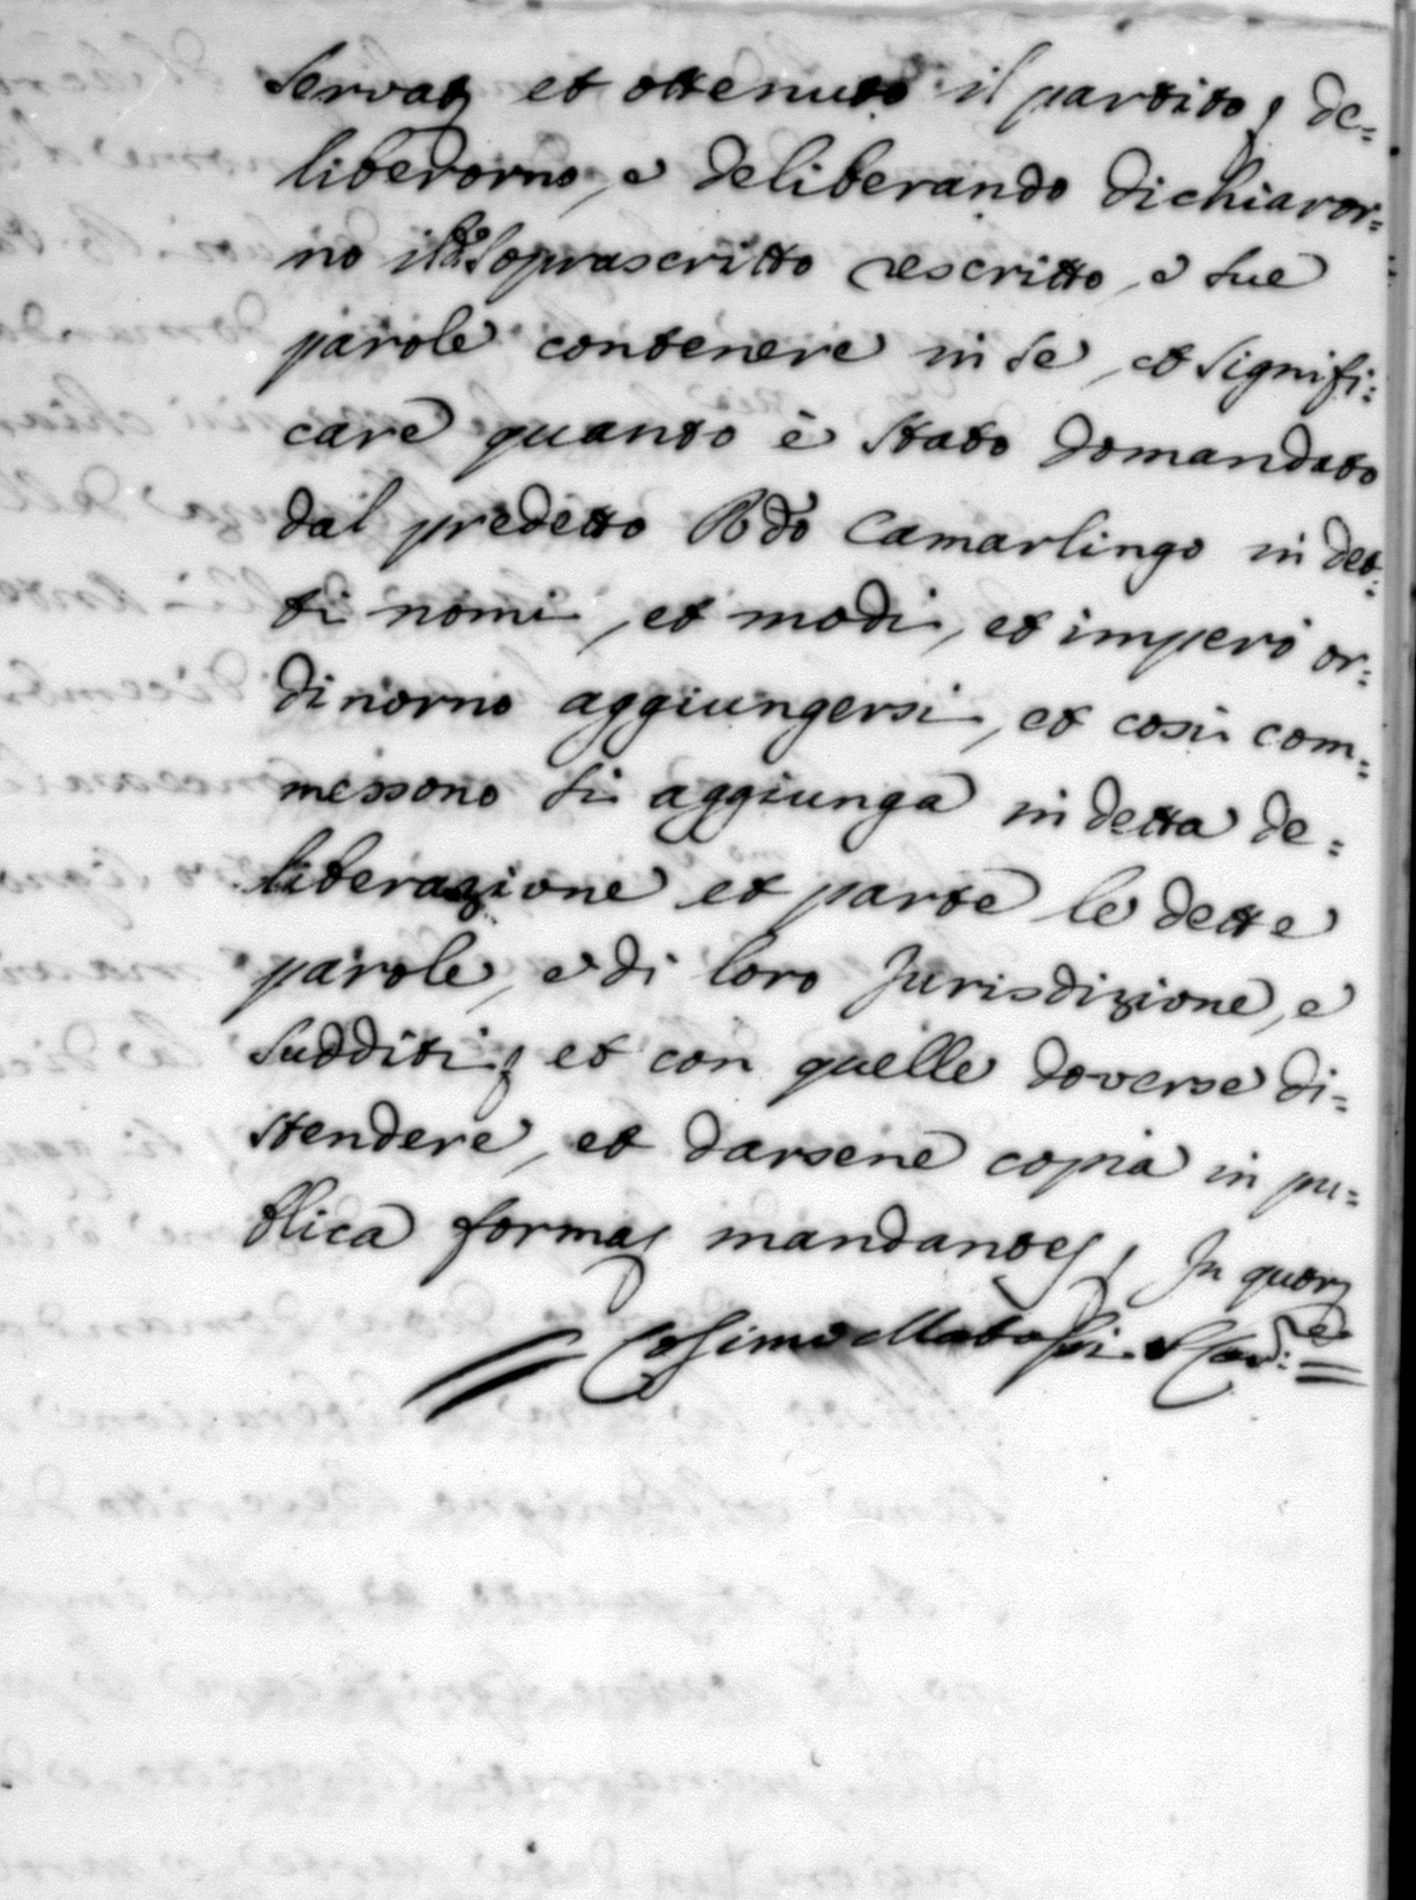 Servatj et ottenuto il partito, de=
liberorno, e deliberando dichiaror=
no il dº Soprascritto rescritto, e sue
parole contenere in se, et signifi=
care quanto è stato domandato
dal predetto Rdo Camarlingo in det=
ti nomi, et modi, et imperò or=
dinorno aggiungersi, et così com=
messono si aggiunga in detta de=
liberazione et parte le dette
parole, e di loro Jurisdizione, e
sudditi, et con quelle doverse di=
stendere, et darsene copia in pu=
blica forma, mandantes, In quor
Cosimo